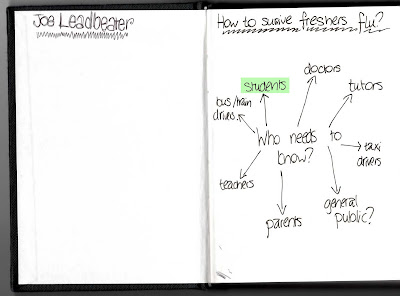 Joe Leadbeater
How to survive freshers flu?
doctors
students
tutors
bus/train
drives
Who needs to
know?
taxi
drivers
teachers
general
public?
parents